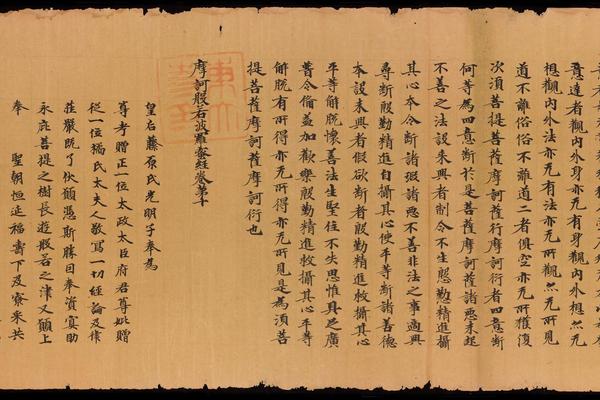 意達者觀內外身亦无有身觀內外想亦无
想觀內外法亦无有法亦无所觀亦无所見
道不離俗俗不離道二者俱空亦无所獲復
次須菩提菩薩摩訶薩行摩訶衍者四意斷
何等為四意斷於是菩薩摩訶薩諸惡未起
不善之法設未興者制令不生慇懃精進攝
其心本令斷諸瑕諸惡不善非法之事適興
尋斷慇懃精進自攝其心使平等斷諸善德
本設未興者假欲斷者慇懃精進救攝其心
平等解脫懷善法生堅住不失思惟具足廣
普令備益加歡樂慇懃精進救攝其心平等
解脫有所得亦无所得亦无所見是為須菩
提菩薩摩訶薩摩訶衍也
摩訶般若波羅蜜經卷第十
皇后藤原氏光明子奉為
尊考贈正一位太政太臣府君尊妣贈
從一位橘氏太夫人敬寫一切經論及律
莊嚴既了伏願憑斯勝因奉資冥助
永庇菩提之樹長遊般若之津又願上
奉 聖朝恒延福壽下及寮采共